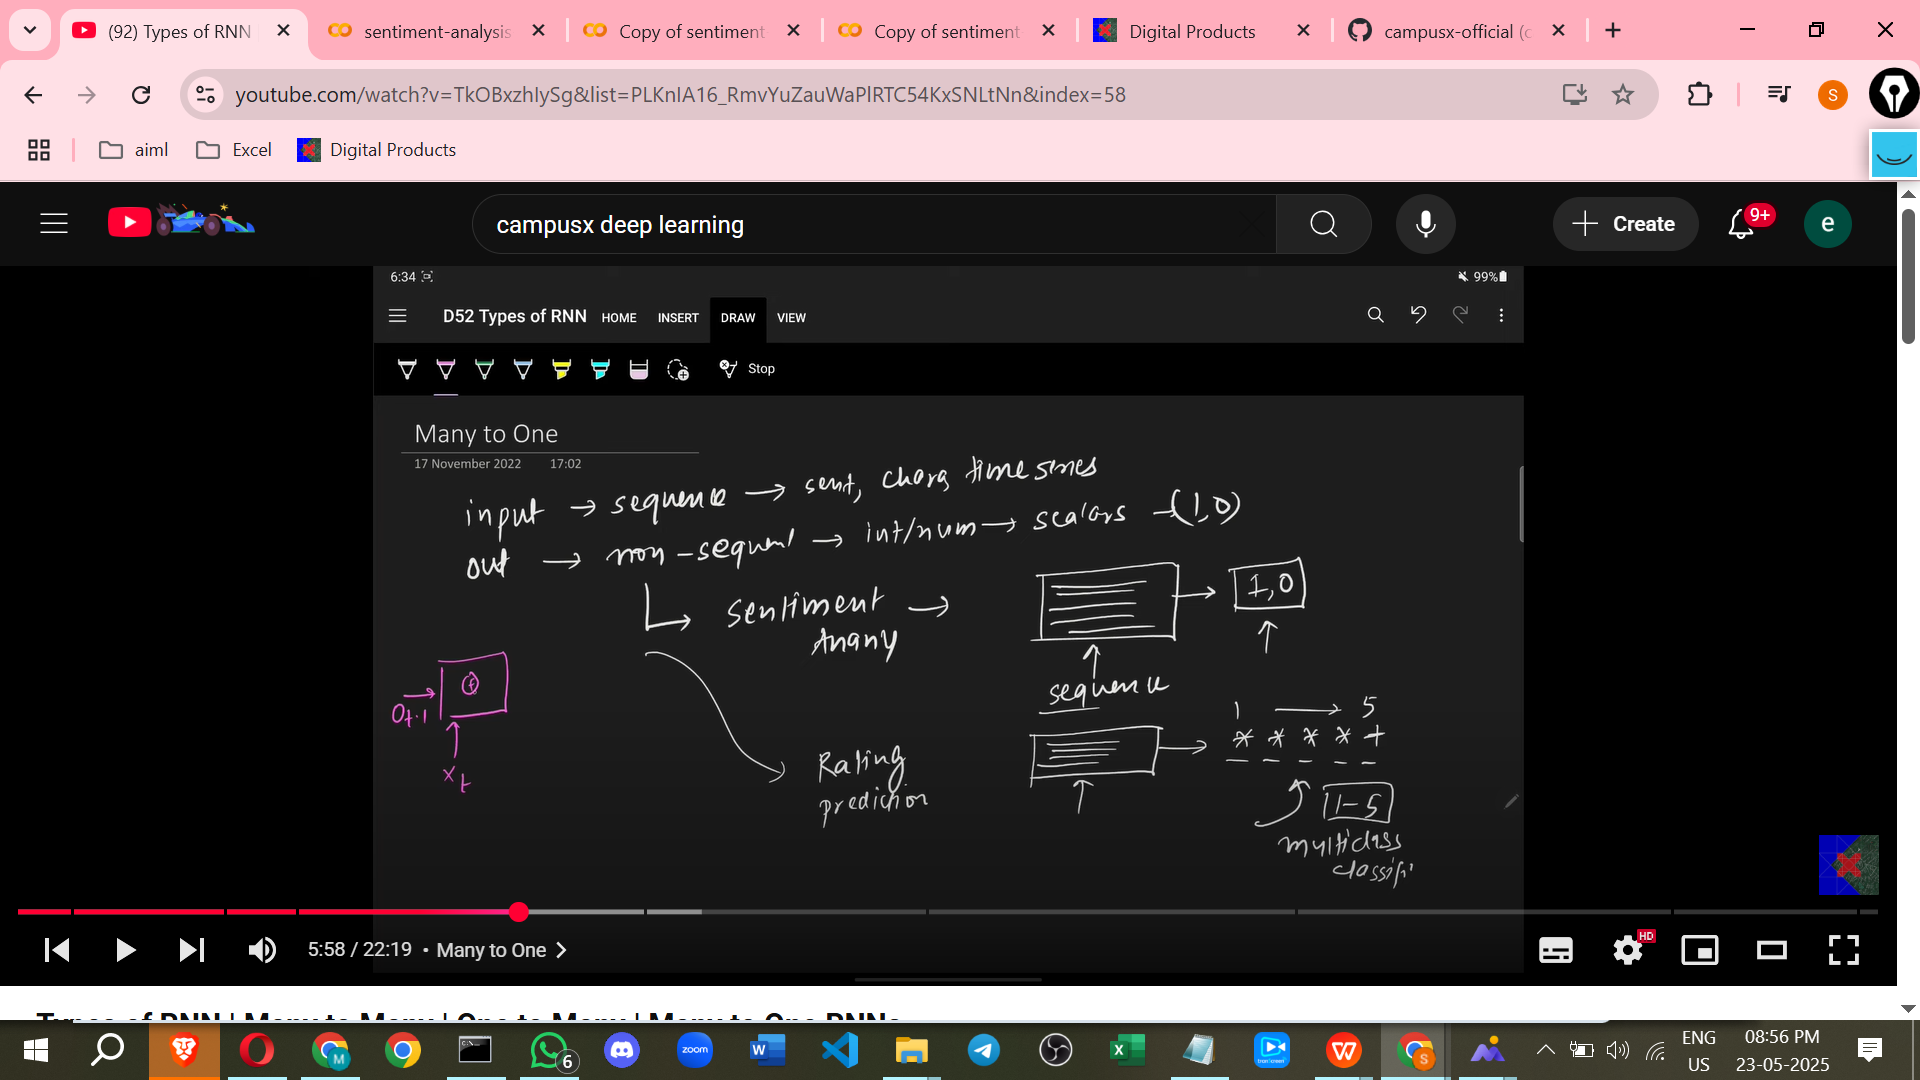 (92) Types of RNN
sentiment-analysis
Copy of sentiment
Copy of sentiment
Digital Products
campusx-official (c
youtube.com/watch?v=TkOBxzhIySg&list=PLKnIA16_RmvYuZauWaPlRTC54KxSNLtNn&index=58
S
aiml
Excel
Digital Products
campusx deep learning
Create
9+
e
6:34
99%
D52 Types of RNN
HOME
INSERT
DRAW
VIEW
Stop
Many to One
17 November 2022 17:02
input → sequence → sent, chars time series
out → non-sequent → int/num → scalars → (1,0)
Sentiment →
1,0
sequence
Ot-1
xt
1 → 5
* * * * +
Rating
prediction
1-5
multiclass
classifi
5:58 / 22:19 • Many to One
HD
Types of RNN | Many to Many | One to Many | Many to One RNNs
M
6
zoom
S
ENG
US
08:56 PM
23-05-2025